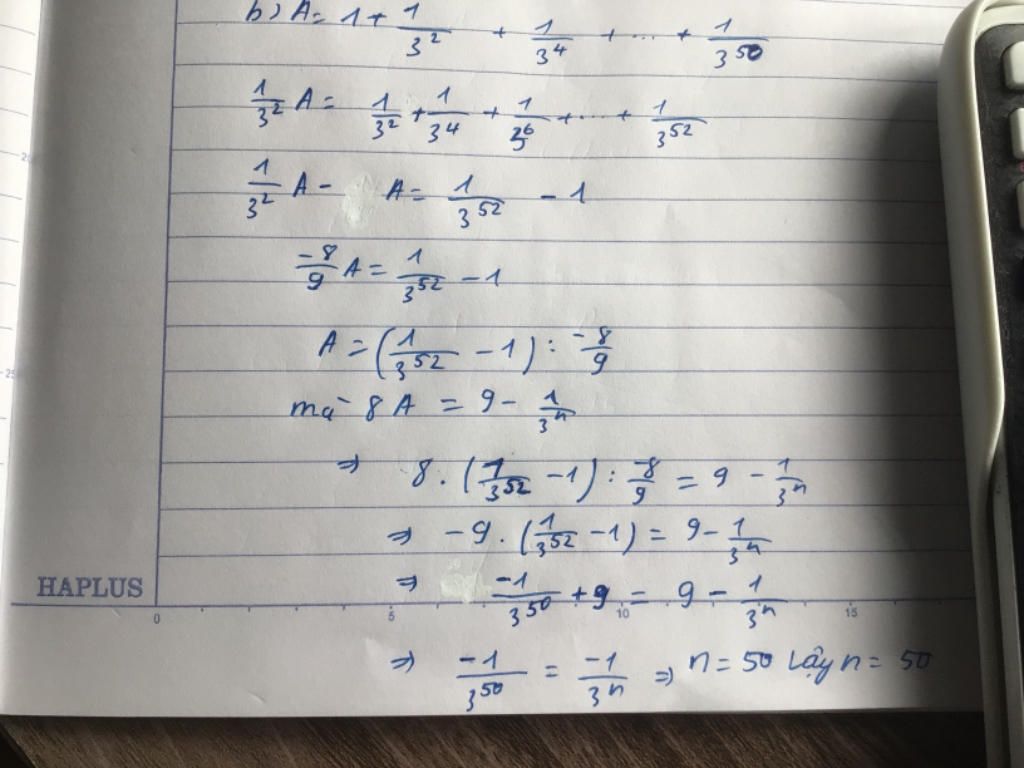 b) A = 1 + 1/3² + 1/3⁴ + ... + 1/3⁵⁰
1/3² A = 1/3² + 1/3⁴ + 1/3⁶ + ... + 1/3⁵²
1/3² A - A = 1/3⁵² - 1
-8/9 A = 1/3⁵² - 1
A = (1/3⁵² - 1) : -8/9
mà 8A = 9 - 1/3ⁿ
⇒ 8 . (1/3⁵² - 1) : -8/9 = 9 - 1/3ⁿ
⇒ -9 . (1/3⁵² - 1) = 9 - 1/3ⁿ
⇒ -1/3⁵⁰ + 9 = 9 - 1/3ⁿ
HAPLUS
0 5 10 15
⇒ -1/3⁵⁰ = -1/3ⁿ ⇒ n = 50 vậy n = 50